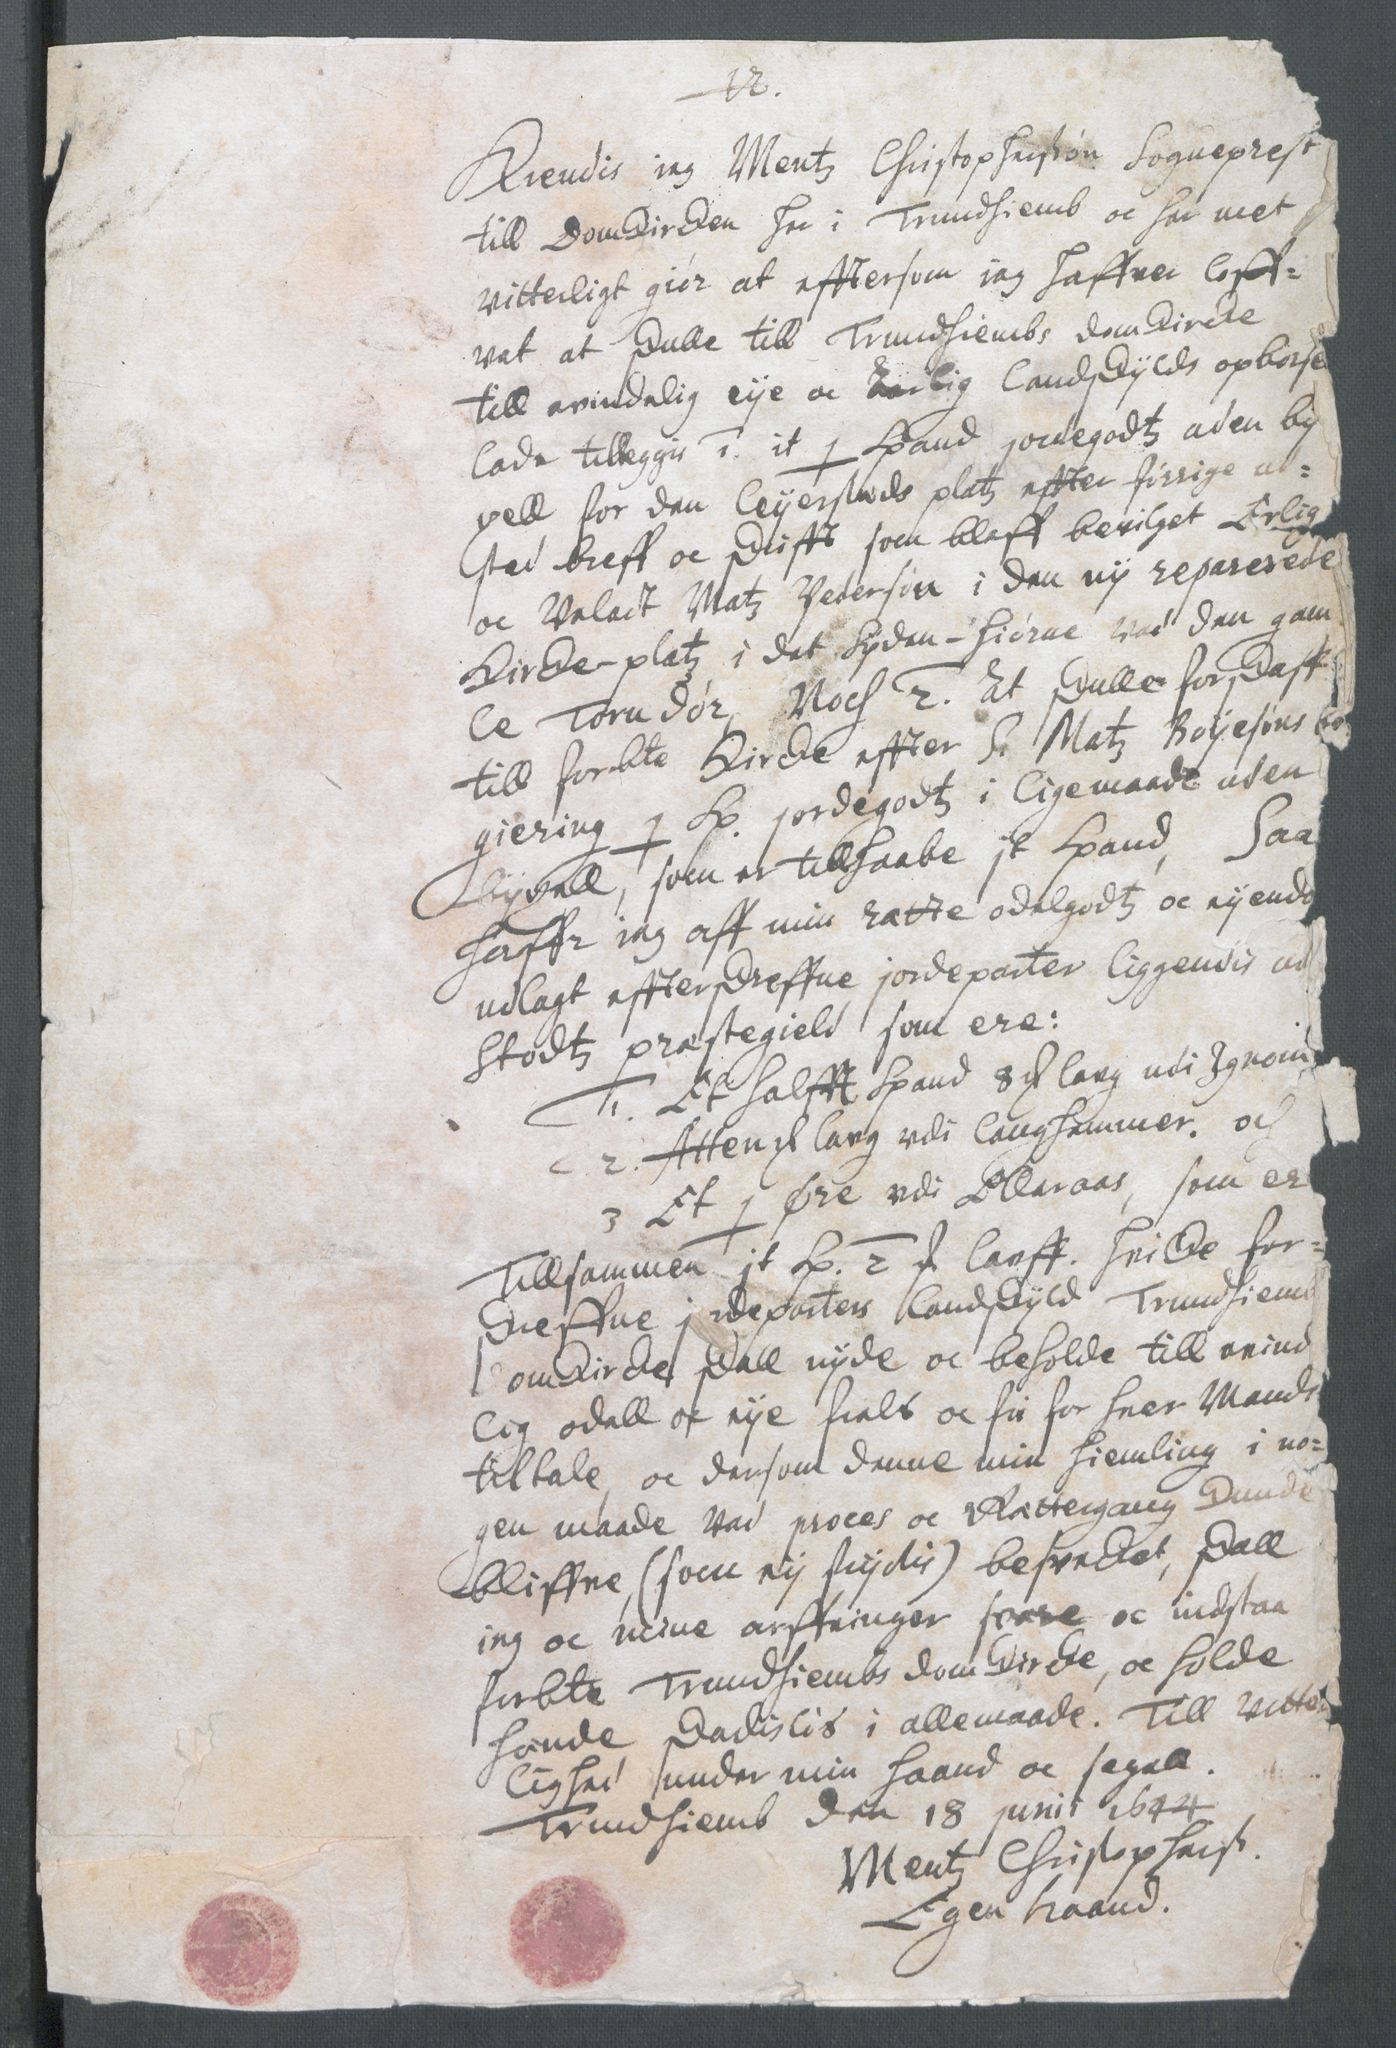 12.
Kiendis ieg Mentz Christophersøn Sogneprest
till Domkircken her i Trundhiemb oc her met
vitterligt giør at efftersom ieg haffver loff-
vet at skulle till Trundhiembs domkircke
till evindelig eije oc aarlig landskylds opbørsel
lade tilleggis 1. it ½ Spand jordegodtz uden by
xell for den leijersteds platz effter forrige ud-
sted breff oc skrifft som bleff bevilget Erlig
oc Velact Matz Pedersøn i den nÿ reparerede
Kircke-platz i det Syden-hiørne ved den gam
le Torndør, Noch 2. At skulle forskaff
till forbte Kircke effter S. Matz Boijesøns be
giering ½ Sp. jordegodtz i ligemaade uden
byxell, som er tillhaabe it Spand, Saa
haffr ieg aff min rætte odelgodtz oc eijendo
udlagt effterskreffne jordeparter liggendis ud
Stodtz præstegield som ere:
1. Et halfft Spand 8 ℔ laug udi
2. Atten ℔ laug vdi Langhammer. och
3 Et ½ Øre vdi Elleraas, som er
Tillsammen it Sp. 2 ℔ lauff. Hvilcke for-
skreffne jordeparters landskyld Trundhiemb
Domkircke skall nyde oc beholde till evind
lig odell oc eije frels oc fri for hver Mands
tiltale, oc dersom denne min hiemling i no-
gen maade ved proces oc Rettergang kunde
bliffve, (som eij frÿctis) besvecket, skall
ieg oc mine arffvinger svare oc indstaa
forbte Trundhiembs domkircke, oc holde
hende skadislis i allemaade. Till Vitter
lighed under min haand oc segell.
Trundhiemb den 18 junii 1644
Mentz Christophersø.
Egen haand.